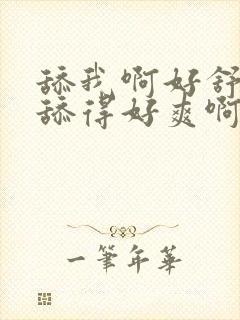 舔我啊好舒
舔得好爽啊
一筆年華